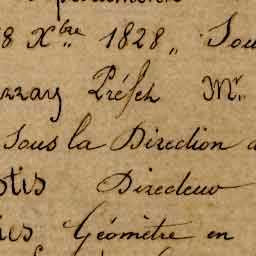 8 Xbre 1828, Sou
zzay Préfet Mr
Sous la Direction d
otis Directeur
ies Géomètre en